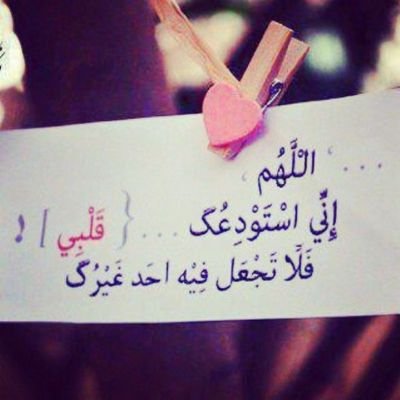 ... ، الْلَّهُم ،
إِنِّي اسْتَوْدِعُگ ... { قَلْبِي ] !
فَلَا تَجْعَل فِيْه احَد غَيْرُگ